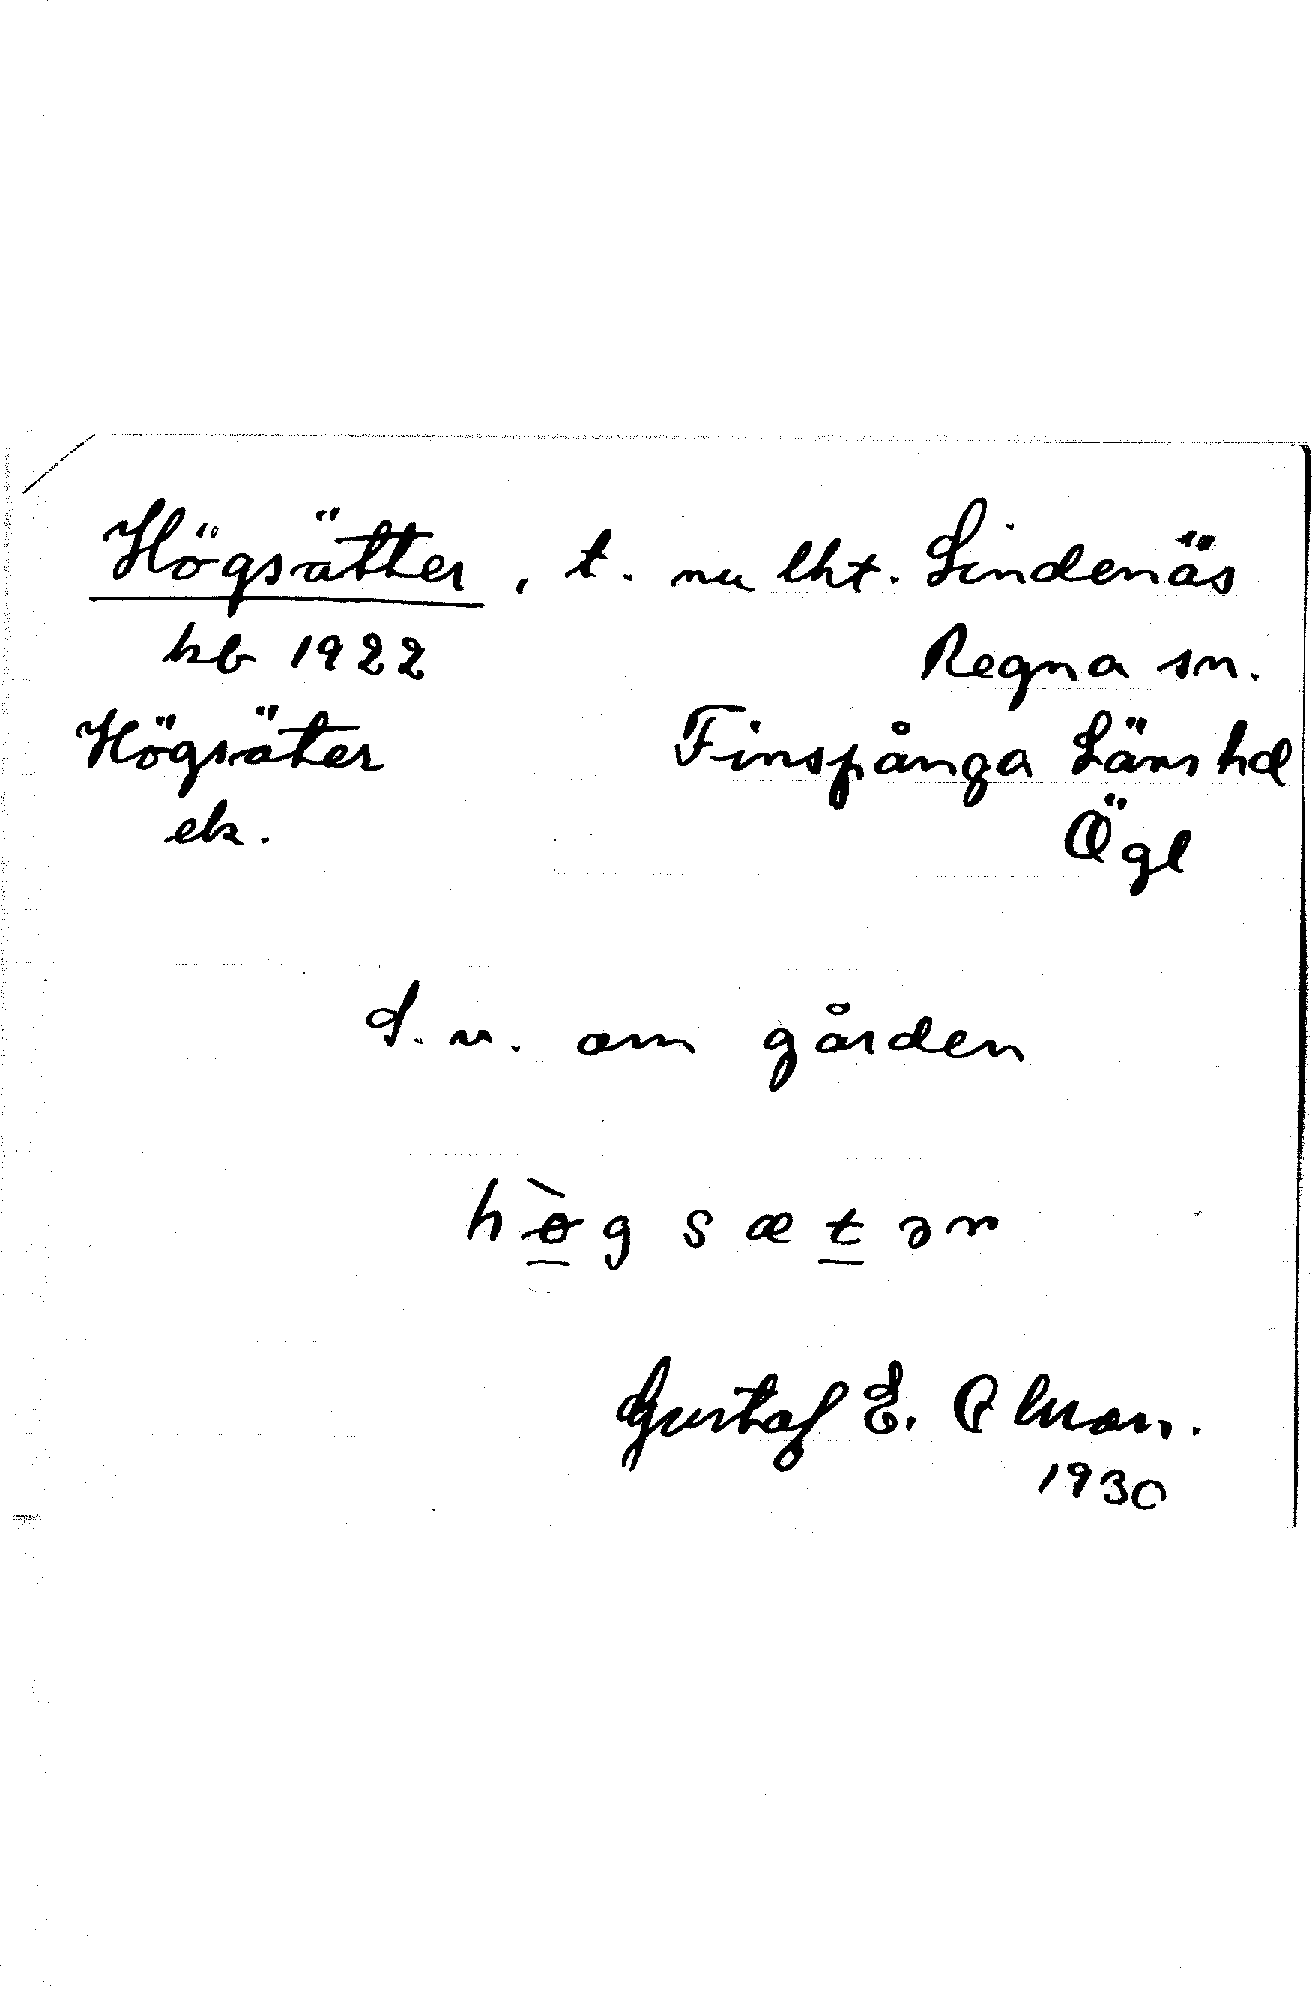 Högsätter, t. nu lht. Lindenäs
kb 1922 Regna sn.
Högsäter Finspånga Läns hd
ek. Ögl
S. u. om gården
hø̀gsætər
Gustaf E. Olsson.
1930